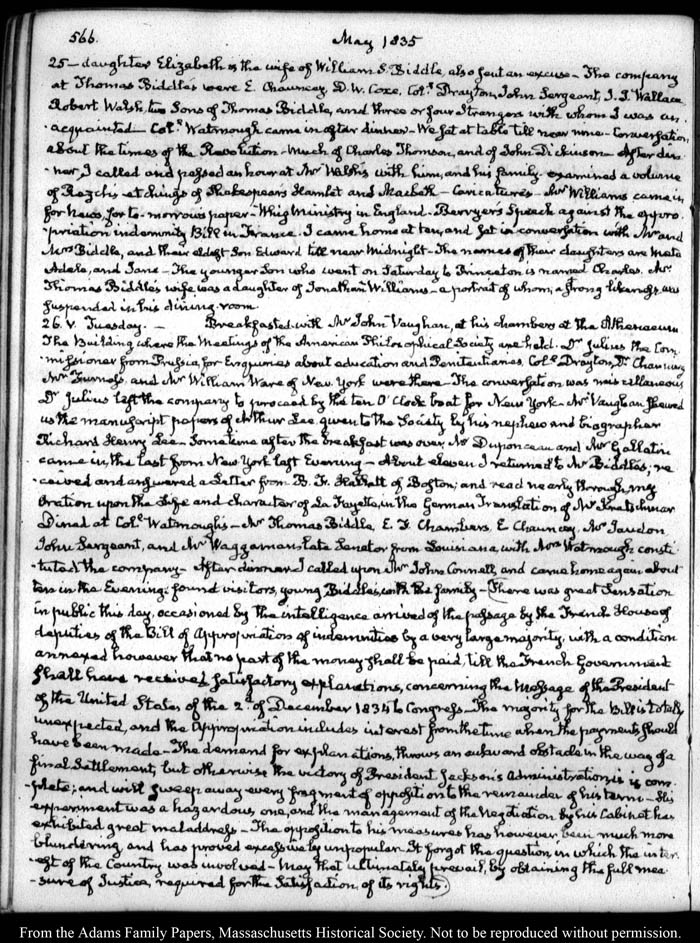 566.
May 1835
25 — daughter Elizabeth is the wife of William S. Biddle, also sent an excuse — The company
at Thomas Biddle's were E. Chauncey, D. W. Coxe, Col.l Drayton, John Sergeant, J. J. Wallace
Robert Walsh, two Sons of Thomas Biddle, and three or four Strangers with whom I was un-
acquainted — Col.l Watmough came in after dinner — We sat at table till near nine — Conversation
about the times of the Revolution — Much of Charles Thomson, and of John Dickinson — After din-
ner, I called and passed an hour at Mr Walsh's with him, and his family — examined a volume
of Retzch's etchings of Shakespear's Hamlet and Macbeth — Caricatures — Mr Williams came in
for News, for to-morrow's paper — Whig Ministry in England — Berryer's Speech against the appro-
priation indemnity Bill in France. I came home at ten, and sat in conversation with Mr and
Mrs Biddle, and their eldest Son Edward till near Midnight — The names of their daughters are Meta
Adele, and Jane — The younger Son who went on Saturday to Princeton is named Charles. Mr
Thomas Biddle's wife was a daughter of Jonathan Williams — a portrait of whom, a strong likeness, was
suspended in his dining room.
26. V. Tuesday. — Breakfasted with Mr John Vaughan, at his chambers at the Athenaeum
The Building where the Meetings of the American Philosophical Society are held. Dr Julius the Com-
missioner from Prussia, for Enquiries about education and Penitentiaries, Col.l Drayton, Dr Chauncey
Mr Furness, and Mr William Ware of New York were there — The conversation was miscellaneous
Dr Julius left the company to proceed by the ten O'Clock boat for New York — Mr Vaughan shewed
us the manuscript papers of Arthur Lee given to the Society by his nephew and biographer
Richard Henry Lee — Some time after the breakfast was over, Mr Duponceau and Mr Gallatin
came in, the last from New York last Evening — About eleven I returned to Mr Biddle's; re-
ceived and answered a Letter from B. F. Hallett of Boston; and read nearly through, my
Oration upon the Life and character of La Fayette, in the German Translation of Mr
Dined at Col.l Watmough's — Mr Thomas Biddle, E. F. Chambers, E Chauncey, Mr Jaudon
John Sergeant, and Mr Waggaman late Senator from Louisiana with Mrs Watmough consti-
tuted the company — After dinner I called upon Mr John Connell, and came home again about
ten in the Evening: found visitors, young Biddles, with the family — (There was great Sensation
in public this day, occasioned by the intelligence arrived of the passage by the French House of
deputies of the Bill of Appropriation of indemnities by a very large majority, with a condition
annexed however that no part of the money shall be paid, till the French Government
shall have received satisfactory explanations, concerning the Message of the President
of the United States of the 2.d of December 1834 to Congress — The majority for the Bill is totally
unexpected, and the Appropriation includes interest from the time when the payments should
have been made — The demand for explanations, throws an aukward obstacle in the way of a
final Settlement, but otherwise the victory of President Jackson's Administration is com-
plete; and will sweep away every fragment of opposition to the remainder of his term — His
experiment was a hazardous one, and the management of the Negotiation by his Cabinet has
exhibited great maladdress — The opposition to his measures has however been much more
blundering, and has proved excessively unpopular. It forgot the question, in which the inter-
est of the Country was involved — May that ultimately prevail, by obtaining the full mea-
sure of Justice, required for the Satisfaction, of its rights.)
From the Adams Family Papers, Massachusetts Historical Society. Not to be reproduced without permission.